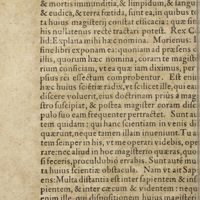 & mortis immunditia, & limpidum, & sangu
& eudica, & terra fœtida, sunt ea, in quibus to
ta huius magisterij constat efficacia: quæ sin
his nullatenus recte tractari potest. Rex Ca
lid: Explana mihi hæc nomina. Morienus: I
fine libri exponam ea: quoniam ad præsens c
illis, quorum hæc nomina, coram te magiste
rium conficiam, vt ea quæ iam diximus, per
psius rei effectum comprobentur. Est enim
hæc huius scientiæ radix, vt scilicet ille, qui ea
discere voluerit, eius doctrinam prius à mag
stro suscipiat, & postea magister coram disci
pulo suo eam frequenter pertractet. Sunt au
tem quidam: qui hanc scientiam in venis di
quærunt, neque tamen illam inueniunt. Tu a
tem semper in his, vt me operari videbis, ope
rare: nec aliud in hoc magisterio quæras, quo
si feceris, proculdubiò errabis. Sunt autē mu
ta huius scientiæ obstacula. Nam vt ait Sap
ens: Multa distantia est inter sapientem & ins
pientem, & inter cæcum & videntem: neq
enim ille, qui dispositionem huius magisterij